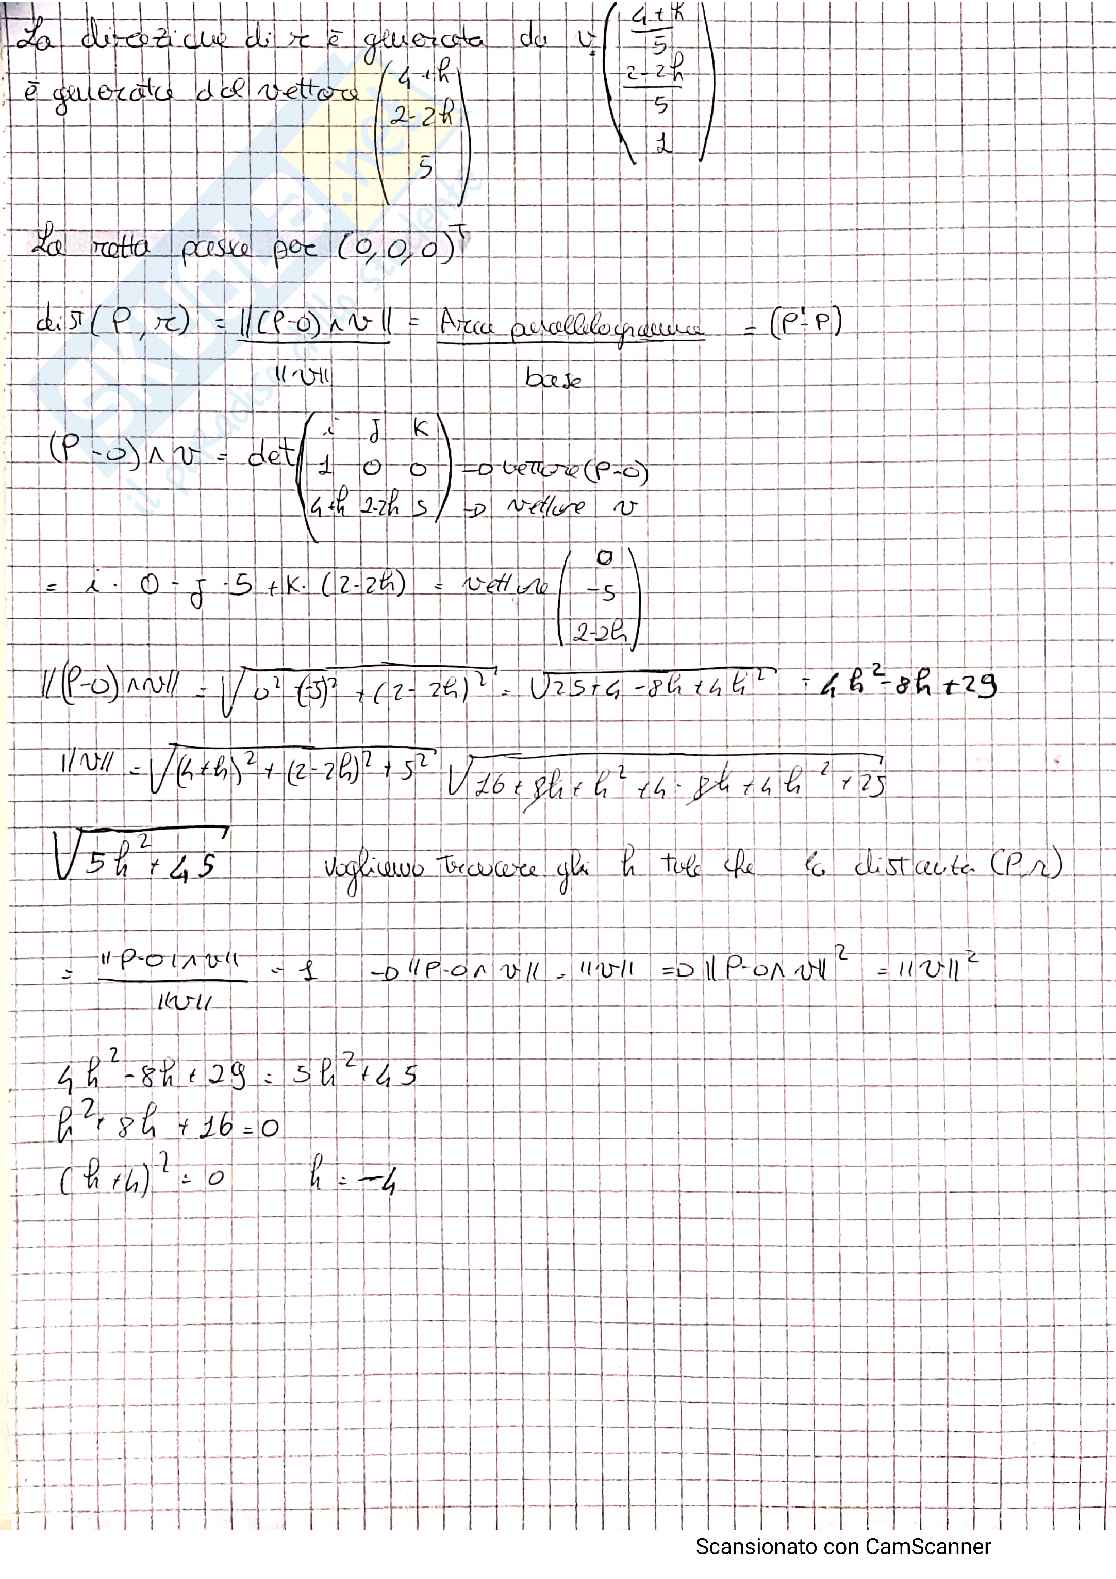 La direzione di r è generata da v: ( 4+k/5
2-2h/5
1 )
è generata dal vettore ( 4+h
2-2h
5 )
La retta passa per (0,0,0)ᵀ
dist(P, r) = ||(P-O)∧v|| / ||v|| = Area parallelogramma / base = (P'-P)
(P-O)∧v = det ( i j k
1 0 0 → vettore (P-O)
4+h 2-2h 5 ) → vettore v
= i · 0 - j · 5 + k · (2-2h) = vettore ( 0
-5
2-2h )
||(P-O)∧v|| = √(0² (-5)² + (2-2h)²) = √(25+4-8h+4h²) = 4h²-8h+29
||v|| = √((4+h)² + (2-2h)² + 5²) √(16+8h+h²+4-8h+4h²+25)
√(5h²+45) vogliamo trovare gli h tale che la distanza (P,r)
= ||P-O∧v|| / ||v|| = 1 → ||P-O∧v|| = ||v|| ⇒ ||P-O∧v||² = ||v||²
4h²-8h+29 = 5h²+45
h²+8h+16=0
(h+4)²=0 h=-4
Scansionato con CamScanner